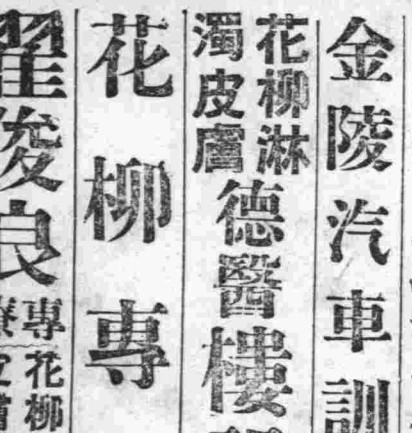 金陵汽車訓
花柳淋
濁皮膚
德醫樓
花柳專
翟俊良
專
花柳